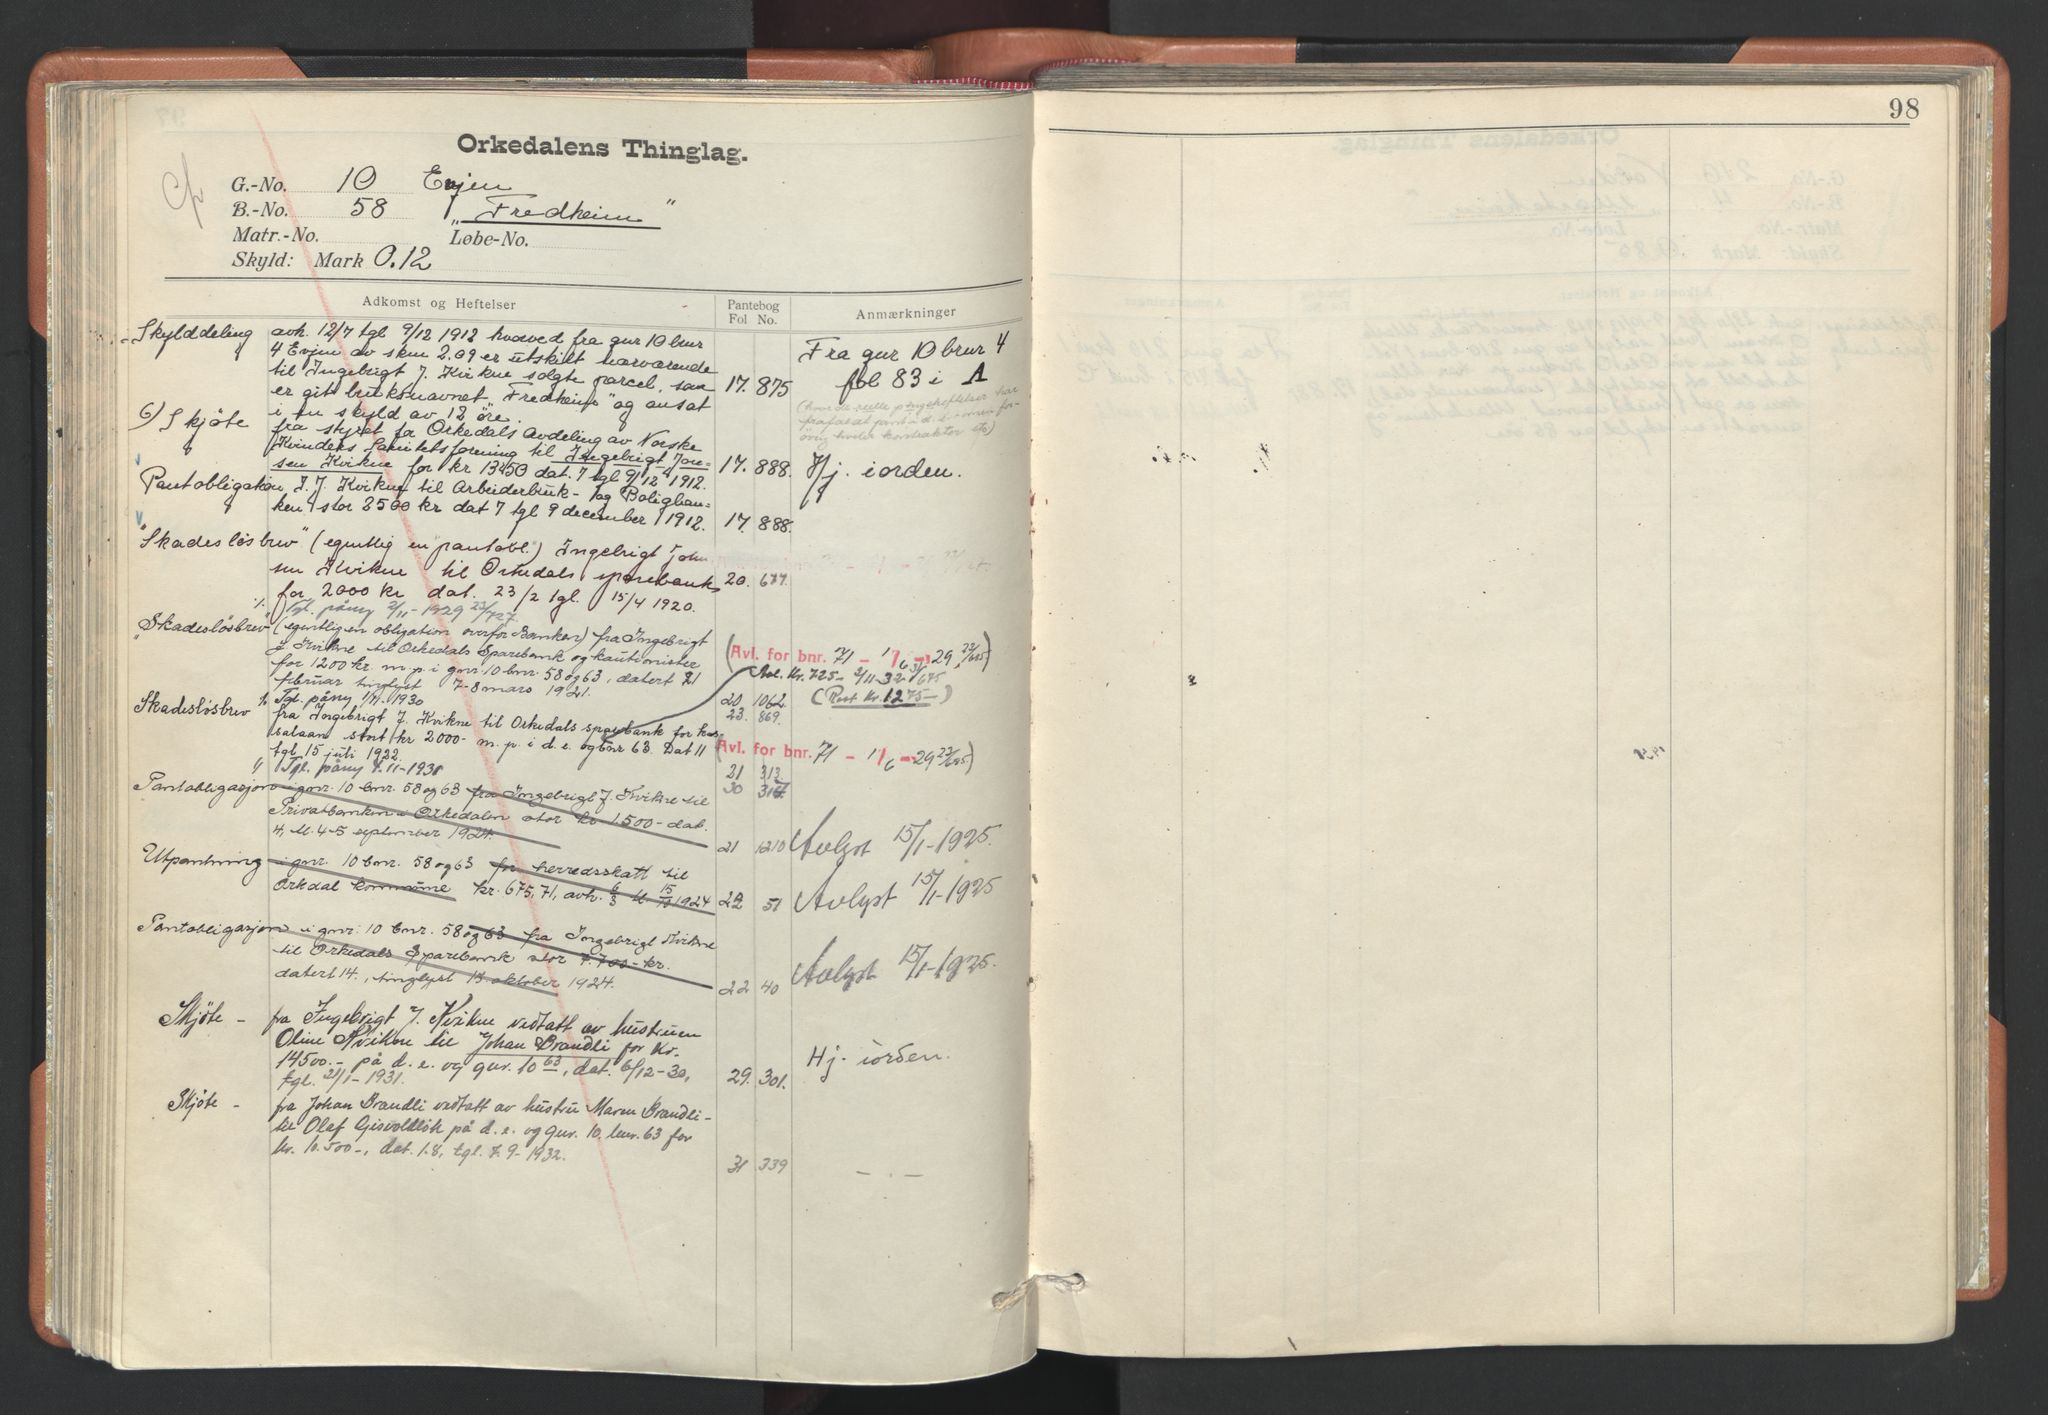 98
Orkedalens Thinglag.
G.-No. 10 Evjen
B.-No. 58 „Fredheim"
Matr.-No. Løbe-No.
Skyld: Mark 0.12
Adkomst og Heftelser Pantebog Fol No. Anmærkninger
Skylddeling avh. 12/7 tgl 9/12 1912 hvorved fra gnr 10 bnr
4 Evjen av skm 2.09 er utskilt nærværende Fra gnr 10 brnr 4
til Ingebrigt J. Kvikne solgte parcel, som 17. 875 fol 83 i A
er git bruksnavnet „Fredheim" og ansat
i en skyld av 12 øre.
Skjøte fra styret for Orkedals Avdeling av Norske
Kvinders Sanitetsforening til Ingebrigt Jon-
sen Kvikne for kr 13450 dat. 7 tgl 9/12 1912. 17. 888. Hj. iorden.
Pantobligation I. J. Kvikne til Arbeiderbruk- og Boligban-
ken stor 2500 kr dat 7 tgl 9 december 1912. 17 888.
"Skadesløsbrev" (egentlig en pantobl.) Ingebrigt John
sen Kvikne til Orkedals sparebank 20. 677.
for 2000 kr dat. 23/2 tgl. 15/4 1920.
Tgl. påny 2/11-1929 23/727.
"Skadesløsbrev" (egentlig en obligation overfor Banken) fra Ingebrigt
J. Kvikne til Orkedals Sparebank og kautionister (Avl. for bnr. 71 – 1/6 – 29 22/685)
for 1200 kr. m. p. i gnr. 10 bnr. 58 og 63, datert 21 Avl. Kr. 725- 2/11-32 31/675
februar tinglyst 7-8 mars 1921. 20 1062. (Rest Kr. 1275-)
Tgl. påny 1/11-1930 23. 869.
Skadesløsbrev fra Ingebrigt J. Kvikne til Orkedals sparebank for kas-
salaan stort kr 2000- m. p. i d. e. og bnr 63. Dat 11 (Avl. for bnr. 71 – 1/6 – 29 22/685)
tgl. 15 juli 1922. 21 313
Tgl. påny 7.11-1931 30 317
Pantobligasjon i gnr. 10 bnr. 58 og 63 fra Ingebrigt J. Kvikne til
Privatbanken i Orkedalen stor kr. 1500- dat.
4, tl. 4-5 september 1924. 21 1210 Avlyst 15/1-1925.
Utpantning i gnr. 10 bnr. 58 og 63 for herredsskatt til
Orkdal kommune kr. 675,71, avh. 1924 22 51 Avlyst 15/1-1925
Pantobligasjon i gnr. 10 bnr. 58 og 63 fra Ingebrigt Kvikne
til Orkedals Sparebank stor 7.700- kr.
datert 14., tinglyst 15 oktober 1924. 22 40 Avlyst 15/1-1925.
Skjøte – fra Ingebrigt J. Kvikne vedtatt av hustruen
Oline Kvikne til Johan Brandli for Kr.
14500.- på d. e. og gnr. 10 63, dat. 6/12-30, Hj. iorden.
tgl. 21/1-1931. 29. 301.
Skjøte – fra Johan Brandli vedtatt av hustru Maren Brandli-
til Olaf Gisvoldløk på d. e. og gnr. 10. bnr. 63 for
kr. 10.500-, dat. 1.8, tgl. 7.9-1932. 31 339 – . –